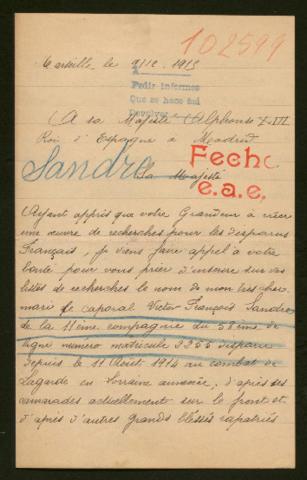 102599
Marseille, le 1915
Pedir informes
Que se hace así
Devolver
A sa Majesté Alphonse XIII
Roi d'Espagne à Madrid
Sandre
Fecho
e.a.e.
Sa Majesté
Ayant appris que votre Grandeur a créer
une œuvre de recherches pour les disparus
Français, je viens faire appel à votre
bonté pour vous prier d'inscrire sur vos
listes de recherches le nom de mon très cher
mari le caporal Victor François Sandre
de la 11ème compagnie du 58ème de
ligne numéro matricule 2255 disparu
depuis le 11 Août 1914 au combat de
Lagarde en Lorraine annexée, d'après ses
camarades actuellement sur le front et
d'après d'autres grands blessés rapatriés